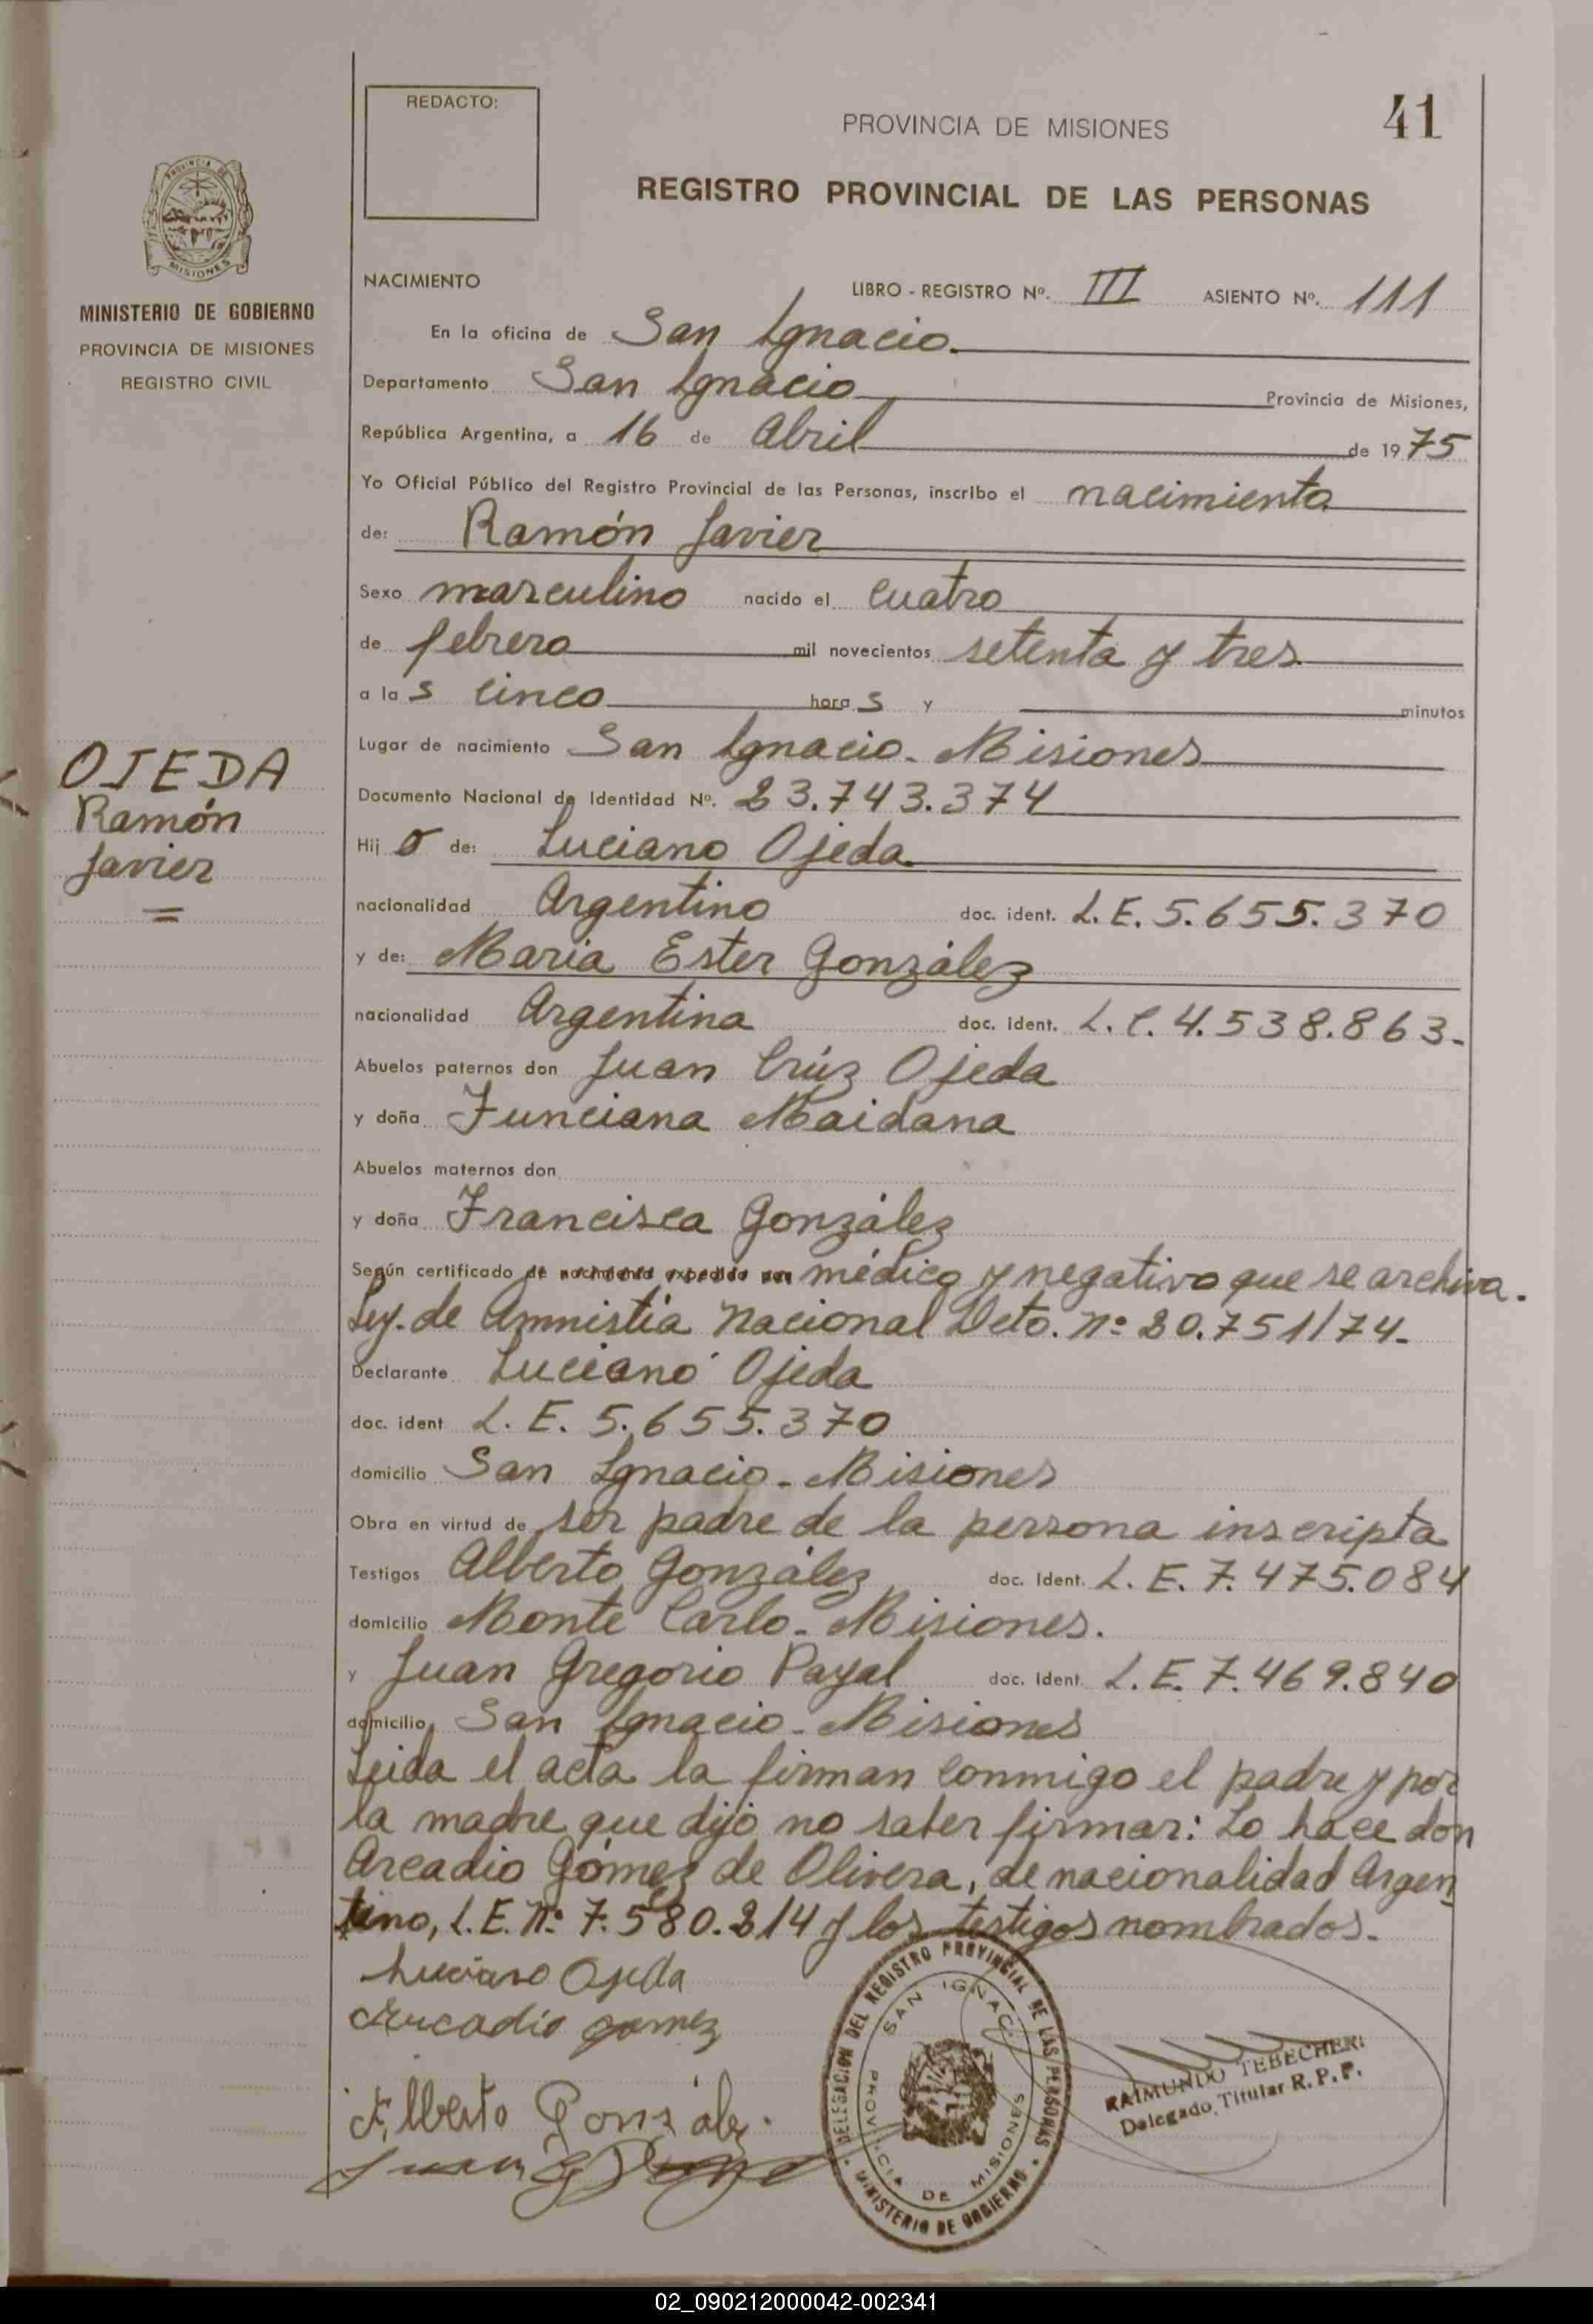 41
REDACTO:
PROVINCIA DE MISIONES
REGISTRO PROVINCIAL DE LAS PERSONAS
PROVINCIA DE
MISIONES
MINISTERIO DE GOBIERNO
PROVINCIA DE MISIONES
REGISTRO CIVIL
NACIMIENTO LIBRO - REGISTRO Nº. III ASIENTO Nº. 111
En la oficina de San Ignacio.
Departamento San Ignacio Provincia de Misiones,
República Argentina, a 16 de Abril de 1975
Yo Oficial Público del Registro Provincial de las Personas, inscribo el nacimiento
de: Ramón Javier
Sexo masculino nacido el cuatro
de febrero mil novecientos setenta y tres
a las cinco horas y minutos
Lugar de nacimiento San Ignacio - Misiones
OJEDA
Ramón
Javier
=
Documento Nacional de Identidad Nº. 23.743.374
Hijo de: Luciano Ojeda
nacionalidad Argentino doc. ident. L.E. 5.655.370
y de: Maria Ester González
nacionalidad Argentina doc. ident. L.C. 4.538.863.-
Abuelos paternos don Juan Crúz Ojeda
y doña Funciana Maidana
Abuelos maternos don
y doña Francisca González
Según certificado de nacimiento expedido por médico y negativo que se archiva.
Ley. de Amnistía Nacional Dcto. nº 20.751/74.-
Declarante Luciano Ojeda
doc. ident L. E. 5.655.370
domicilio San Ignacio - Misiones
Obra en virtud de ser padre de la persona inscripta
Testigos Alberto González doc. Ident. L. E. 7.475.084
domicilio Monte Carlo - Misiones.
y Juan Gregorio Payal doc. Ident. L.E. 7.469.840
domicilio San Ignacio - Misiones
Leida el acta la firman conmigo el padre y por
la madre que dijo no saber firmar: Lo hace don
Arcadio Gómez de Olivera, de nacionalidad Argen
tino, L.E. nº 7.580.214 y los testigos nombrados.-
Luciano Ojeda
Arcadio gomez
Alberto Gonzalez.
Juan G
DELEGACION DEL REGISTRO PROVINCIAL DE LAS PERSONAS
MINISTERIO DE GOBIERNO
SAN IGNACIO
PROVINCIA DE MISIONES
RAIMUNDO TEBECHERI
Delegado Titular R. P. P.
02_090212000042-002341